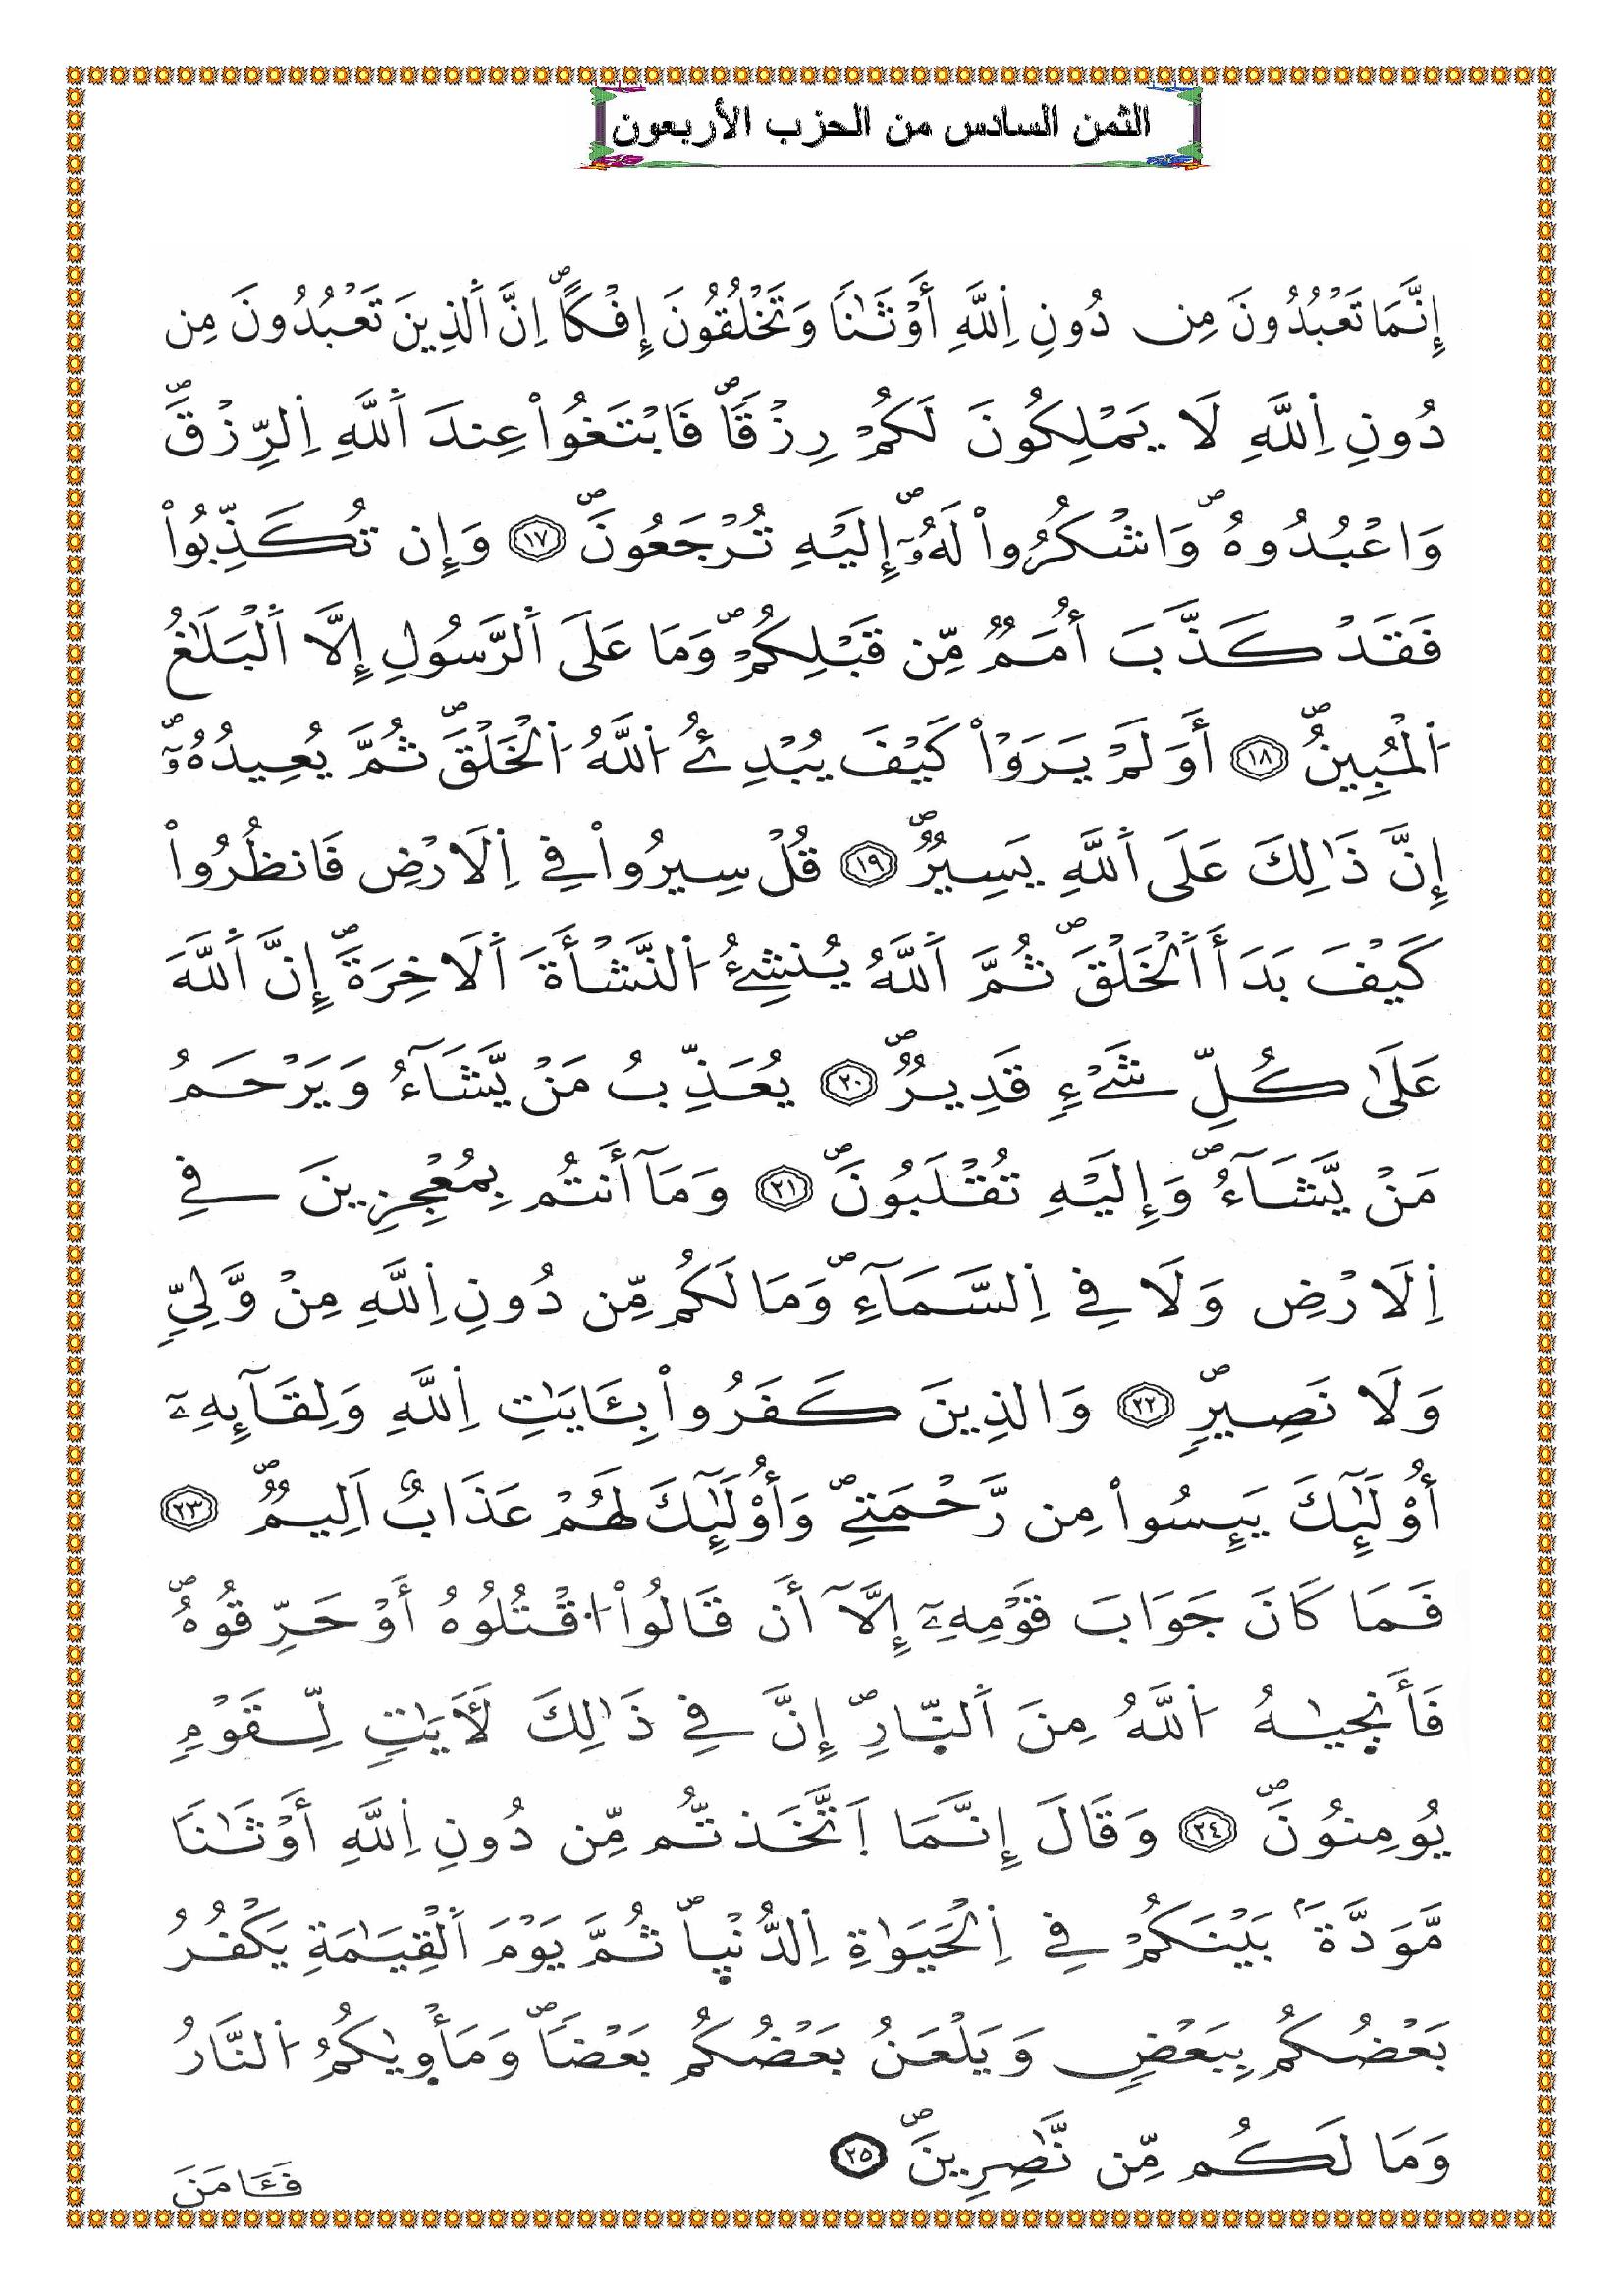 الثمن السادس من الحزب الأربعون
إِنَّمَا تَعْبُدُونَ مِن دُونِ اِ۬للَّهِ أَوْثَٰناٗ وَتَخْلُقُونَ إِفْكاًۖ اِنَّ اَ۬لذِينَ تَعْبُدُونَ مِن
دُونِ اِ۬للَّهِ لَا يَمْلِكُونَ لَكُمْ رِزْقاٗۖ فَابْتَغُواْ عِندَ اَ۬للَّهِ اِ۬لرِّزْقَۖ
وَاعْبُدُوهُۖ وَاشْكُرُواْ لَهُۥٓۖ إِلَيْهِ تُرْجَعُونَۖ ١٧ وَإِن تُكَذِّبُواْ
فَقَدْ كَذَّبَ أُمَمٞ مِّن قَبْلِكُمْۖ وَمَا عَلَى اَ۬لرَّسُولِ إِلَّا اَ۬لْبَلَٰغُ
اُ۬لْمُبِينُۖ ١٨ أَوَلَمْ يَرَوْاْ كَيْفَ يُبْدِئُ اُ۬للَّهُ اُ۬لْخَلْقَۖ ثُمَّ يُعِيدُهُۥٓۖ
إِنَّ ذَٰلِكَ عَلَى اَ۬للَّهِ يَسِيرٞۖ ١٩ قُلْ سِيرُواْ فِي اِ۬لَارْضِ فَانظُرُواْ
كَيْفَ بَدَأَ اَ۬لْخَلْقَۖ ثُمَّ اَ۬للَّهُ يُنشِئُ اُ۬لنَّشْأَةَ اَ۬لَاخِرَةَۖ إِنَّ اَ۬للَّهَ
عَلَىٰ كُلِّ شَےْءٖ قَدِيرٞۖ ٢٠ يُعَذِّبُ مَنْ يَّشَآءُ وَيَرْحَمُ
مَنْ يَّشَآءُۖ وَإِلَيْهِ تُقْلَبُونَۖ ٢١ وَمَآ أَنتُم بِمُعْجِزِينَ فِي
اِ۬لَارْضِ وَلَا فِي اِ۬لسَّمَآءِۖ وَمَا لَكُم مِّن دُونِ اِ۬للَّهِ مِنْ وَّلِيّٖ
وَلَا نَصِيرٖۖ ٢٢ وَالذِينَ كَفَرُواْ بِـَٔايَٰتِ اِ۬للَّهِ وَلِقَآئِهِۦٓ
أُوْلَٰٓئِكَ يَئِسُواْ مِن رَّحْمَتِےۖ وَأُوْلَٰٓئِكَ لَهُمْ عَذَابٌ اَلِيمٞۖ ٢٣
فَمَا كَانَ جَوَابَ قَوْمِهِۦٓ إِلَّآ أَن قَالُواْ اُ۟قْتُلُوهُ أَوْ حَرِّقُوهُۖ
فَأَنج۪يٰهُ اُ۬للَّهُ مِنَ اَ۬لنّ۪ارِۖ إِنَّ فِي ذَٰلِكَ لَأٓيَٰتٖ لِّقَوْمٖ
يُومِنُونَۖ ٢٤ وَقَالَ إِنَّمَا اَ۪تَّخَذتُّم مِّن دُونِ اِ۬للَّهِ أَوْثَٰناٗ
مَّوَدَّةَٗ بَيْنَكُمْ فِي اِ۬لْحَيَوٰةِ اِ۬لدُّنْي۪اۖ ثُمَّ يَوْمَ اَ۬لْقِيَٰمَةِ يَكْفُرُ
بَعْضُكُم بِبَعْضٖ وَيَلْعَنُ بَعْضُكُم بَعْضاٗۖ وَمَأْو۪يٰكُمُ اُ۬لنَّارُ
وَمَا لَكُم مِّن نَّٰصِرِينَۖ ٢٥
فَـَٔامَنَ